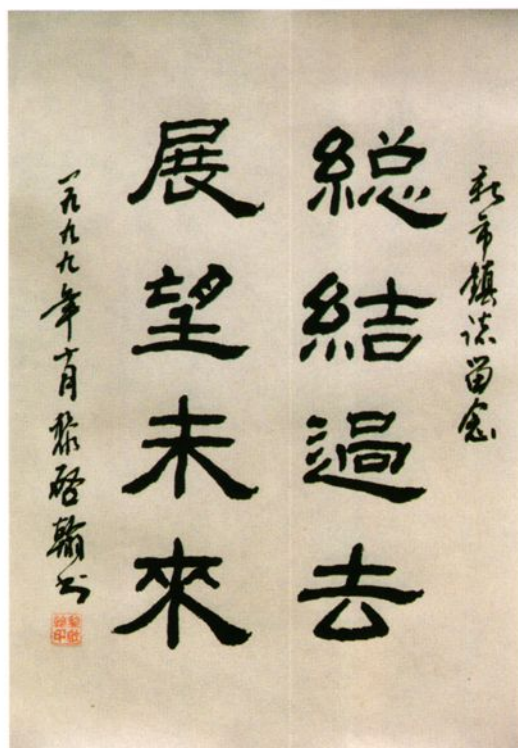 新市镇志留念
総結過去
展望未來
一九九九年十月黎啓翰书